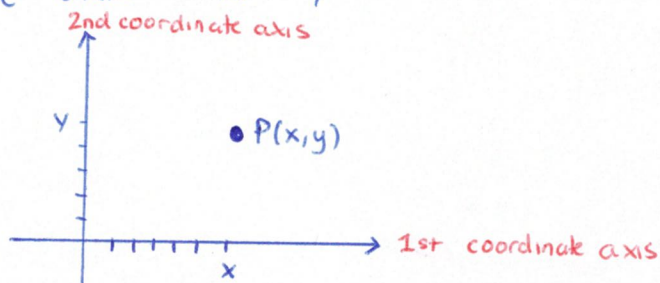 2nd coordinate axis
y
P(x,y)
1st coordinate axis
x